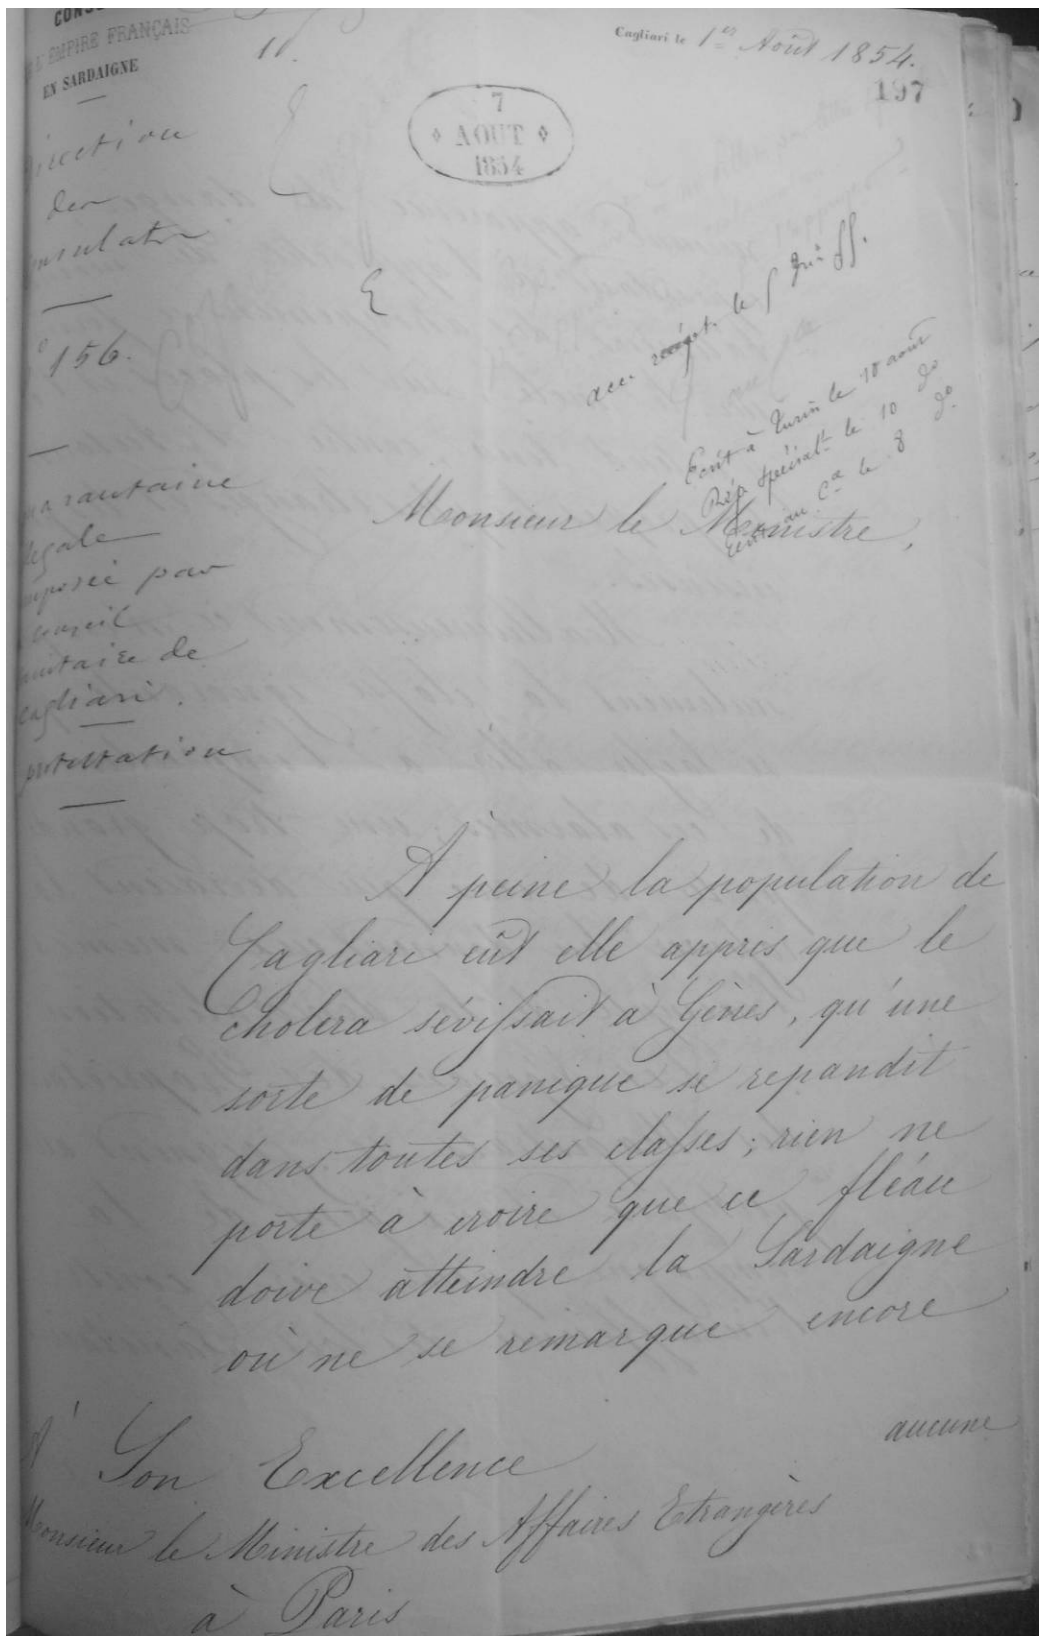 L'EMPIRE FRANÇAIS
EN SARDAIGNE
Cagliari le 1er Août 1854.
197
7
AOUT
1854
irection
des
nsulats
156.
arantaine
légale
mposée par
conseil
nitaire de
Cagliari.
protestation
acc. récept. le
Ecrit à Turin le 10 août
Rép. spécialt le 10 do
Ecrit au Ce le 8 do.
Monsieur le Ministre,
A peine la population de
Cagliari eût elle appris que le
cholera sévissait à Gènes, qu'une
sorte de panique se repandit
dans toutes ses classes; rien ne
porte à croire que ce fléau
doive atteindre la Sardaigne
où ne se remarque encore
aucune
A Son Excellence
Monsieur le Ministre des Affaires Etrangères
à Paris